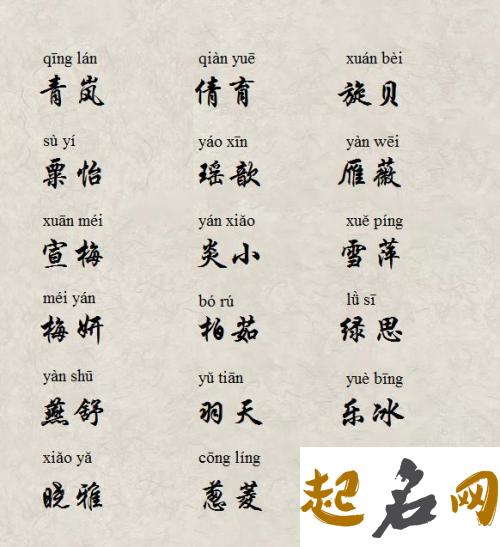 qīng lán qiàn yuē xuán bèi
青岚 倩育 旋贝
sù yí yáo xīn yàn wēi
粟怡 瑶歆 雁薇
xuān méi yán xiǎo xuě píng
宣梅 炎小 雪萍
méi yán bó rú lǜ sī
梅妍 柏茹 绿思
yàn shū yǔ tiān yuè bīng
燕舒 羽天 乐冰
xiǎo yǎ cōng líng
晓雅 葱菱
起名网